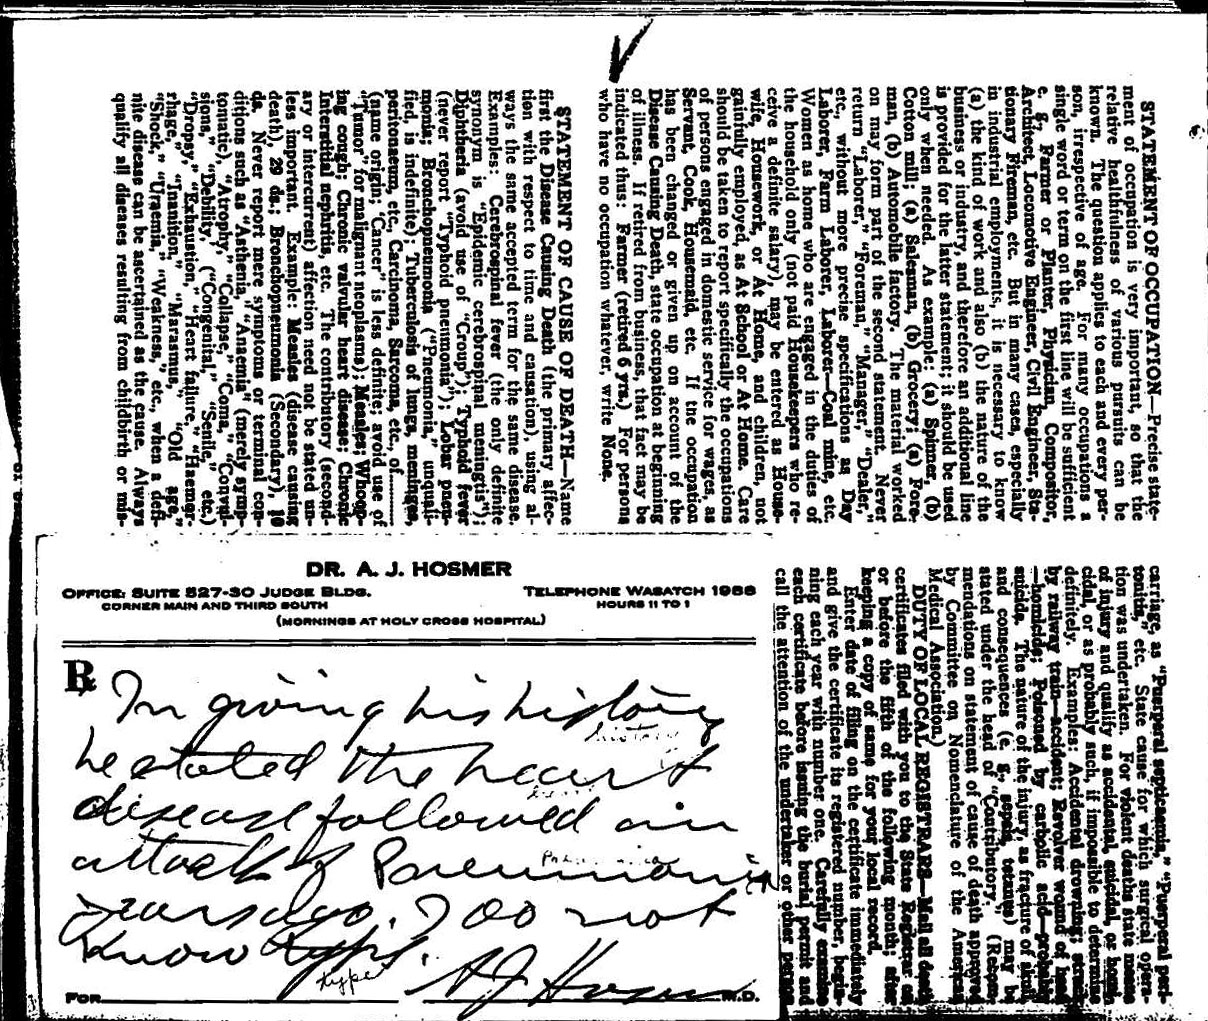 STATEMENT OF OCCUPATION—Precise state-
ment of occupation is very important, so that the
relative healthfulness of various pursuits can be
known. The question applies to each and every per-
son, irrespective of age. For many occupations a
single word or term on the first line will be sufficient
e. g., Farmer or Planter, Physician, Compositor,
Architect, Locomotive Engineer, Civil Engineer, Sta-
tionary Fireman, etc. But in many cases, especially
in industrial employments, it is necessary to know
(a) the kind of work and also (b) the nature of the
business or industry, and therefore an additional line
is provided for the latter statement; it should be used
only when needed. As example: (a) Spinner, (b)
Cotton mill; (a) Salesman, (b) Grocery; (a) Fore-
man, (b) Automobile factory. The material worked
on may form part of the second statement. Never
return "Laborer," "Foreman," "Manager," "Dealer,"
etc., without more precise specifications as Day
Laborer, Farm Laborer, Laborer—Coal mine, etc.
Women as home who are engaged in the duties of
the household only (not paid Housekeepers who re-
ceive a definite salary), may be entered as House-
wife, Housework, or At Home, and children, not
gainfully employed, as At School or At Home. Care
should be taken to report specifically the occupations
of persons engaged in domestic service for wages, as
Servant, Cook, Housemaid, etc. If the occupation
has been changed or given up on account of the
Disease Causing Death, state occupation at beginning
of illness. If retired from business, that fact may be
indicated thus: Farmer (retired 6 yrs.) For persons
who have no occupation whatever, write None.
STATEMENT OF CAUSE OF DEATH—Name
first the Disease Causing Death (the primary affec-
tion with respect to time and causation), using al-
ways the same accepted term for the same disease.
Examples: Cerebrospinal fever (the only definite
synonym is "Epidemic cerebrospinal meningtis");
Diphtheria (avoid use of "Croup"); Typhoid fever
(never report "Typhoid pneumonia"); Lobar pneu-
monia; Bronchopneumonia ("Pneumonia," unquali-
fied, is indefinite); Tuberculosis of lungs, meninges,
peritonaeum, etc., Carcinoma, Sarcoma, etc., of
(name origin; "Cancer" is less definite; avoid use of
"Tumor" for malignant neoplasms); Measles; Whoop-
ing cough; Chronic valvular heart disease; Chronic
Interstitial nephritis, etc. The contributory (second-
ary or intercurrent) affection need not be stated un-
less important. Example: Measles (disease causing
death), 29 ds.; Bronchopneumonia (Secondary), 10
ds. Never report mere symptoms or terminal con-
ditions such as "Asthenia," "Anaemia" (merely symp-
tomatic), "Atrophy," "Collapse," "Coma," "Convul-
sions," "Debility," ("Congenital," "Senile," etc.)
"Dropsy," "Exhaustion," "Heart failure," "Haemor-
rhage," "Inanition," "Marasmus," "Old age,"
"Shock," "Uraemia," "Weakness," etc., when a defi-
nite disease can be ascertained as the cause. Always
qualify all diseases resulting from childbirth or mis-
carriage, as "Puerperal septicaemia," "Puerperal peri-
tonitis," etc. State cause for which surgical opera-
tion was undertaken. For violent deaths state means
of injury and qualify as accidental, suicidal, or homi-
cidal, or as probably such, if impossible to determine
definitely. Examples: Accidental drowning; struck
by railway train—accident; Revolver wound of head
—homicide; Poisoned by carbolic acid—probably
suicide. The nature of the injury, as fracture of skull,
and consequences (e. g., sepsis, tetanus) may be
stated under the head of "Contributory." (Recom-
mendations on statement of cause of death approved
by Committee on Nomenclature of the American
Medical Association.)
DUTY OF LOCAL REGISTRARS—Mail all death
certificates filed with you to the State Registrar on
or before the fifth of the following month; after
keeping a copy of same for your local record.
Enter date of filing on the certificate immediately
and give the certificate its registered number, begin-
ning each year with number one. Carefully examine
each certificate before issuing the burial permit and
call the attention of the undertaker or other person
DR. A. J. HOSMER
OFFICE: SUITE 527-30 JUDGE BLDG. TELEPHONE WASATCH 1988
CORNER MAIN AND THIRD SOUTH HOURS 11 TO 1
(MORNINGS AT HOLY CROSS HOSPITAL)
℞ In giving his history
history
he stated the heart
heart
disease followed an
attack of Pneumonia
Pneumonia
years ago. I do not
know type.
type
A J Hosmer
FOR M.D.